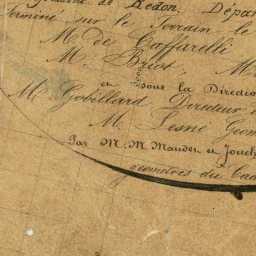 de Redon, Dépar
Terminé sur le Terrain le
M. de Caffarelli
M. Briot, M
et sous la Directio
M. Gobillard Directeur,
M. Lesne Geom
Par M. M. Mauden et Jouch
géomètres du Cad